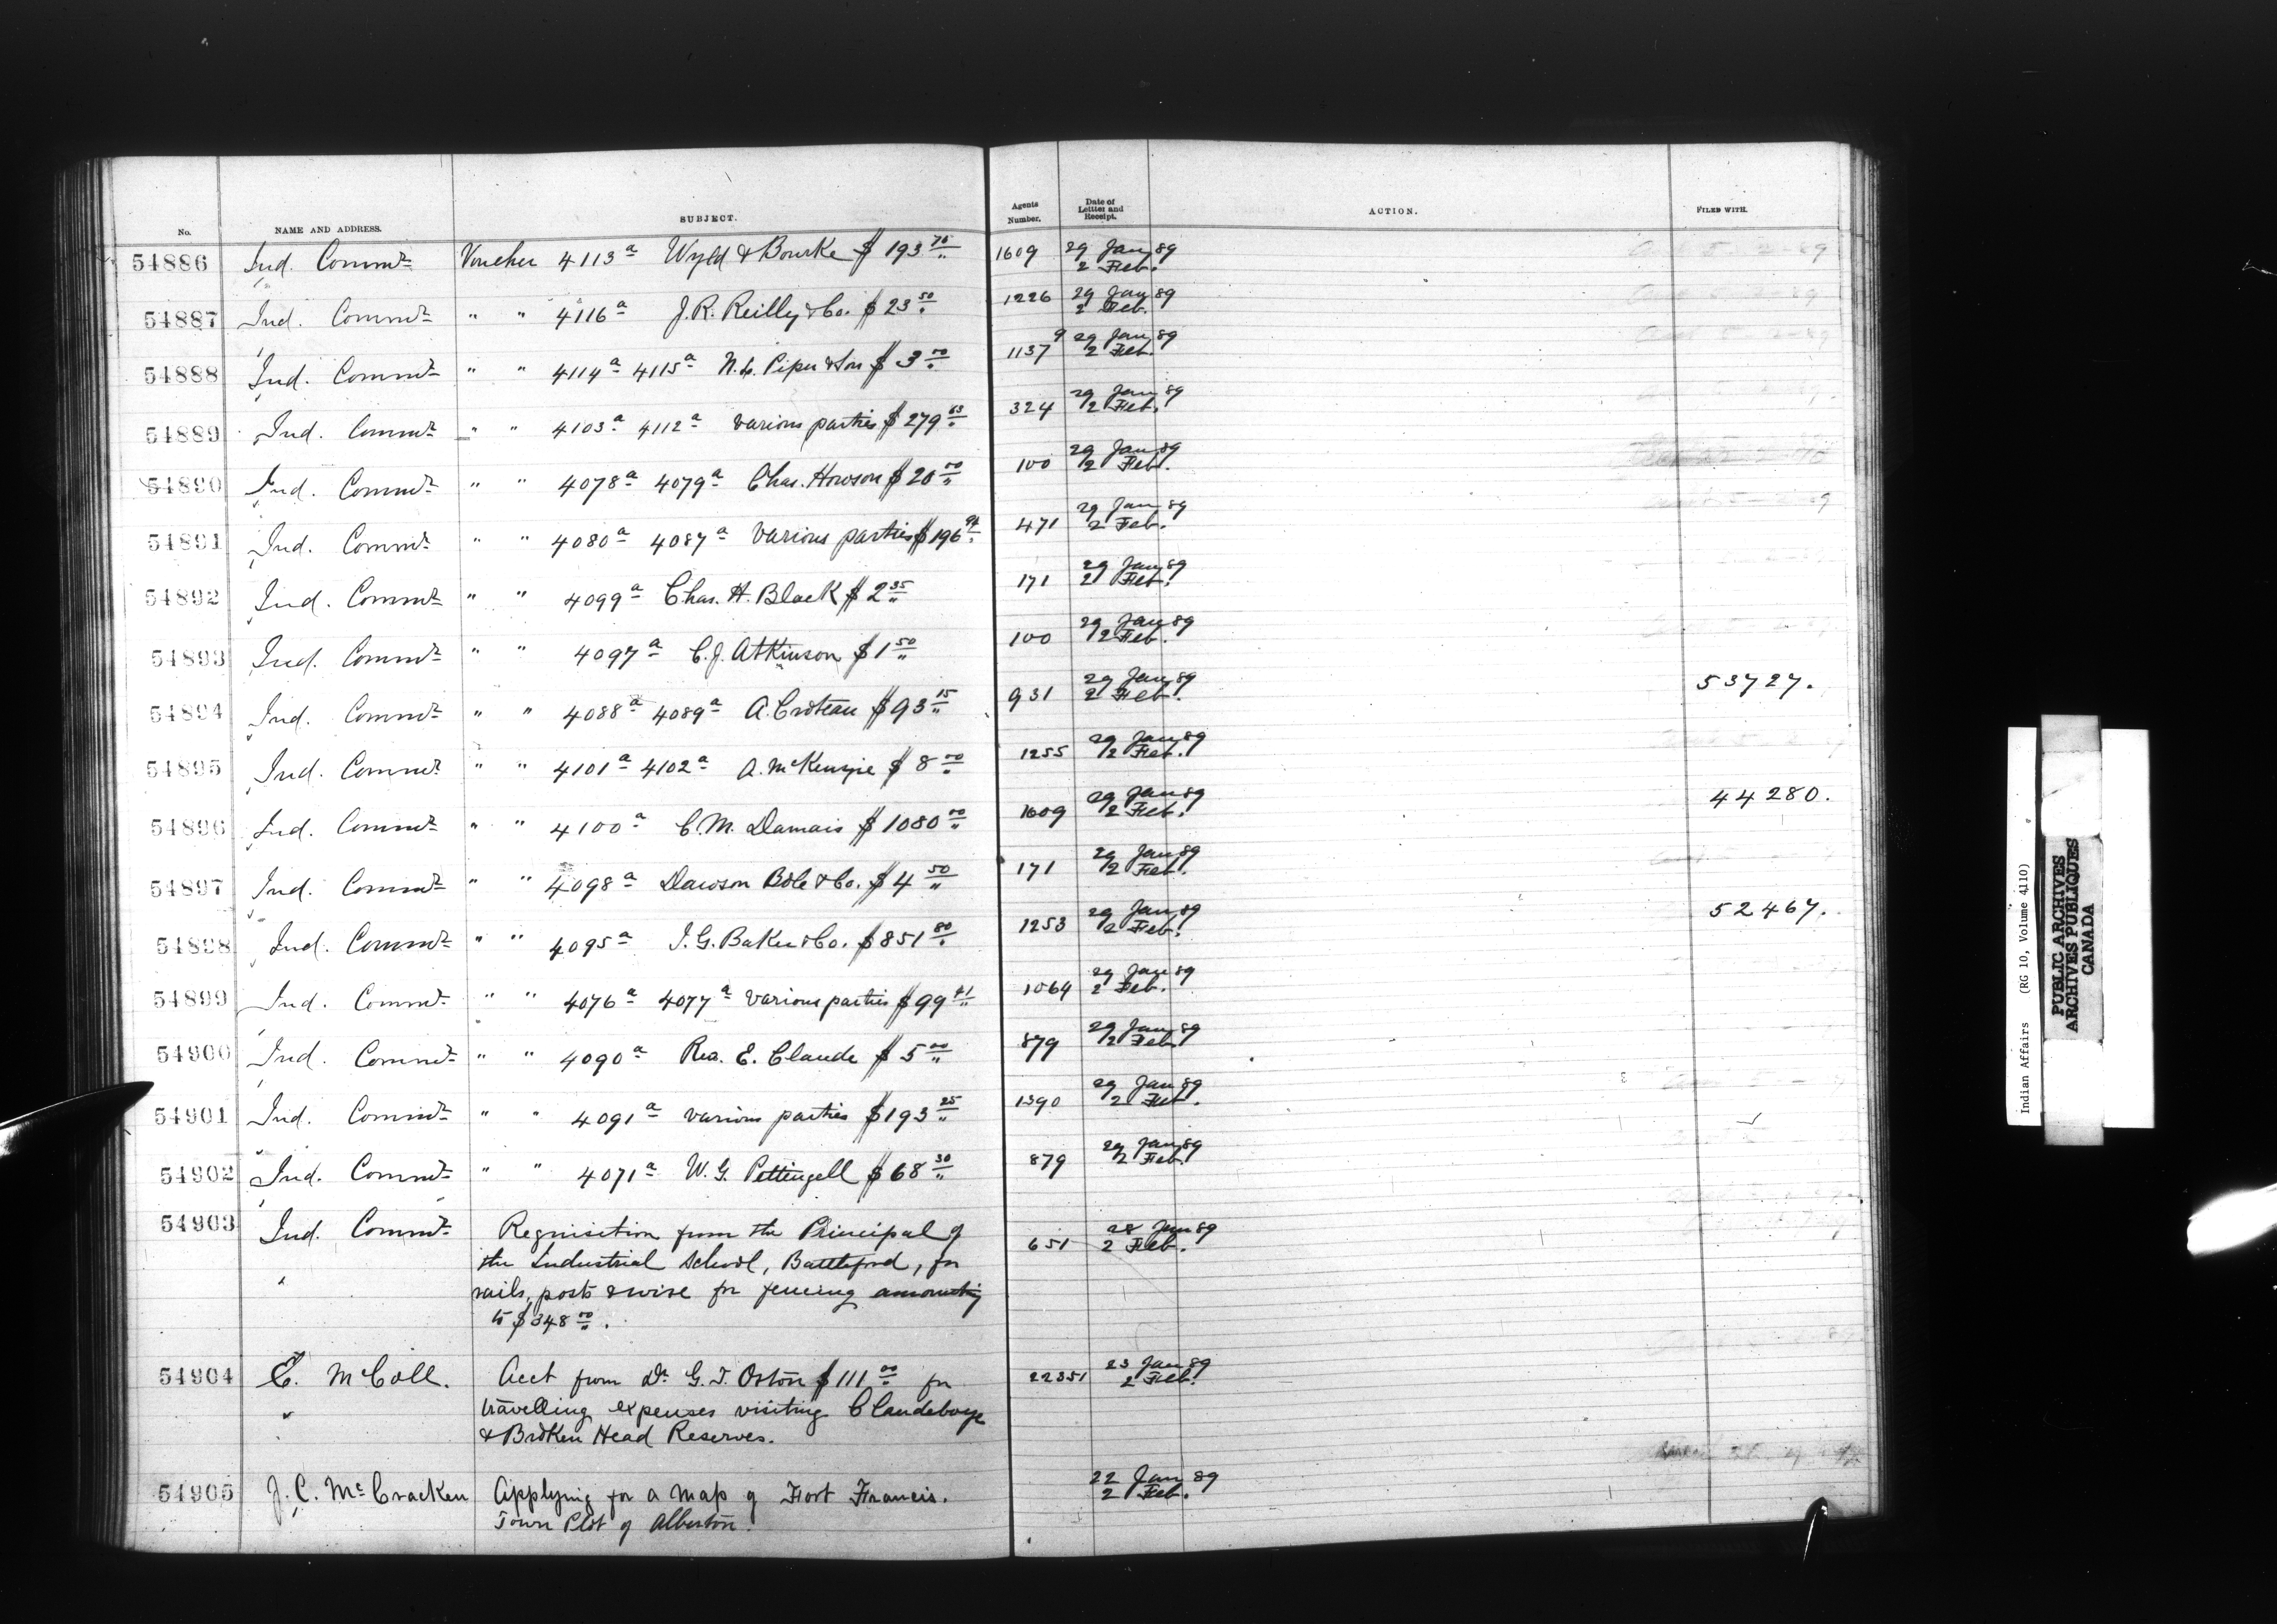 No. NAME AND ADDRESS. SUBJECT. Agents Number. Date of Letter and Receipt. ACTION. FILED WITH.
54886 Ind. Commr Voucher 4113a Wyld & Bourke $193 70 1609 29 Jany 89
2 Feb.
54887 Ind. Commr " " 4116a J. R. Reilly & Co. $23 50 1226 29 Jany 89
2 Feb.
54888 Ind. Commr " " 4114a 4115a N. L. Piper & Son $3 00 1137 9 29 Jany 89
2 Feb.
54889 Ind. Commr " " 4103a 4112a various parties $279 63 324 29 Jany 89
2 Feb.
54890 Ind. Commr " " 4078a 4079a Chas. Howson $20 00 100 29 Jany 89
2 Feb.
54891 Ind. Commr " " 4080a 4087a various parties $196 94 471 29 Jany 89
2 Feb.
54892 Ind. Commr " " 4099a Chas. H. Black $2 35 171 29 Jany 89
2 Feb.
54893 Ind. Commr " " 4097a C. J. Atkinson $1 50 100 29 Jany 89
2 Feb.
54894 Ind. Commr " " 4088a 4089a A. Croteau $93 15 931 29 Jany 89 53727.
2 Feb.
54895 Ind. Commr " " 4101a 4102a A. McKenzie $8 00 1255 29 Jany 89
2 Feb.
54896 Ind. Commr " " 4100a C. M. Damais $1080 00 1609 29 Jany 89 44280.
2 Feb.
54897 Ind. Commr " " 4098a Dawson Bole & Co. $4 50 171 29 Jany 89
2 Feb.
54898 Ind. Commr " " 4095a I. G. Baker & Co. $851 80 1253 29 Jany 89 52467.
2 Feb.
54899 Ind. Commr " " 4076a 4077a various parties $99 41 1064 29 Jany 89
2 Feb.
54900 Ind. Commr " " 4090a Rev. E. Claude $5 00 879 29 Jany 89
2 Feb.
54901 Ind. Commr " " 4091a various parties $193 25 1390 29 Jany 89
2 Feb.
54902 Ind. Commr " " 4071a W. G. Pettingell $68 30 879 29 Jany 89
2 Feb.
54903 Ind. Commr Requisition from the Principal of 651 28 Jany 89
2 Feb.
the Industrial School, Battleford, for
rails, posts & wire for fencing amounting
to $348 00.
54904 E. McColl. Acct from Dr. G. T. Orton $111 00 for 22351 23 Jany 89
2 Feb.
travelling expenses visiting Clandeboye
& Broken Head Reserves.
54905 J. C. McCracken Applying for a map of Fort Francis. 22 Jany 89
2 Feb.
Town Plot of Alberton.
Indian Affairs (RG 10, Volume 4110)
PUBLIC ARCHIVES
ARCHIVES PUBLIQUES
CANADA